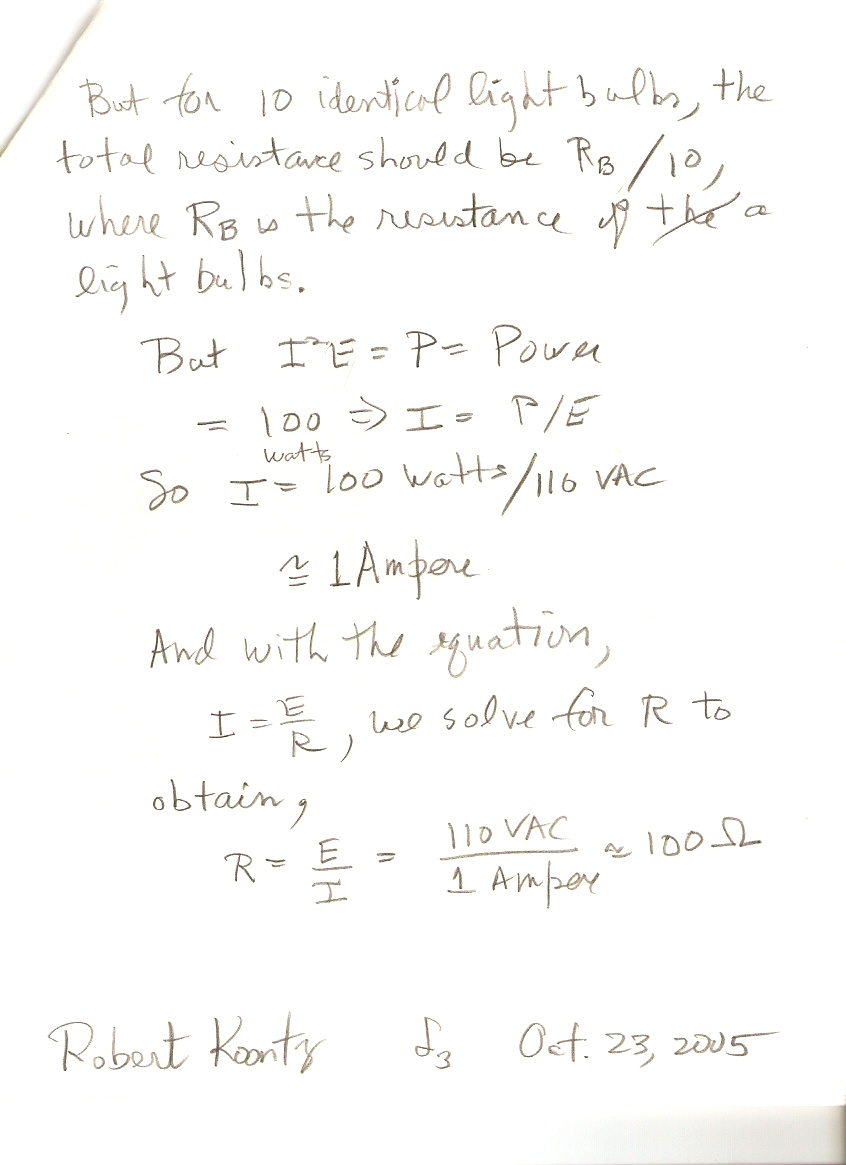 But for 10 identical light bulbs, the
total resistance should be RB/10,
where RB is the resistance of the a
light bulbs.
But I²E = P = Power
= 100 ⇒ I = P/E
watts
So I = 100 watts/110 VAC
≅ 1 Ampere
And with the equation,
I = E/R, we solve for R to
obtain,
R = E/I = 110 VAC/1 Ampere ≈ 100 Ω
Robert Koontz Oct. 23, 2005